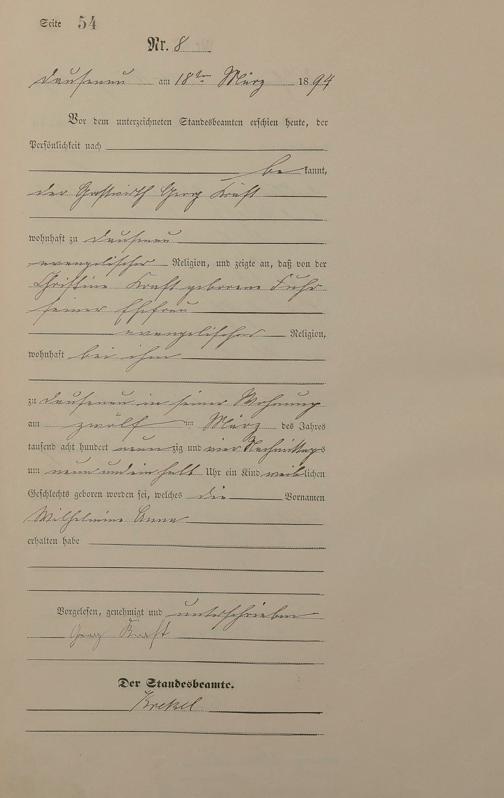 Seite 54
Nr. 8
Dausenau am 18ten März 1894
Vor dem unterzeichneten Standesbeamten erschien heute, der
Persönlichkeit nach
be kannt,
der Gastwirth Georg Kraft
wohnhaft zu Dausenau
evangelischer Religion, und zeigte an, daß von der
Christine Kraft geborene Fuhr
seiner Ehefrau
evangelischer Religion,
wohnhaft bei ihm
zu Dausenau in seiner Wohnung
am zwölften März des Jahres
tausend acht hundert neunzig und vier Nachmittags
um neun und ein halb Uhr ein Kind weiblichen
Geschlechts geboren worden sei, welches die Vornamen
Wilhelmine Anna
erhalten habe
Vorgelesen, genehmigt und unterschrieben
Georg Kraft
Der Standesbeamte.
Krekel